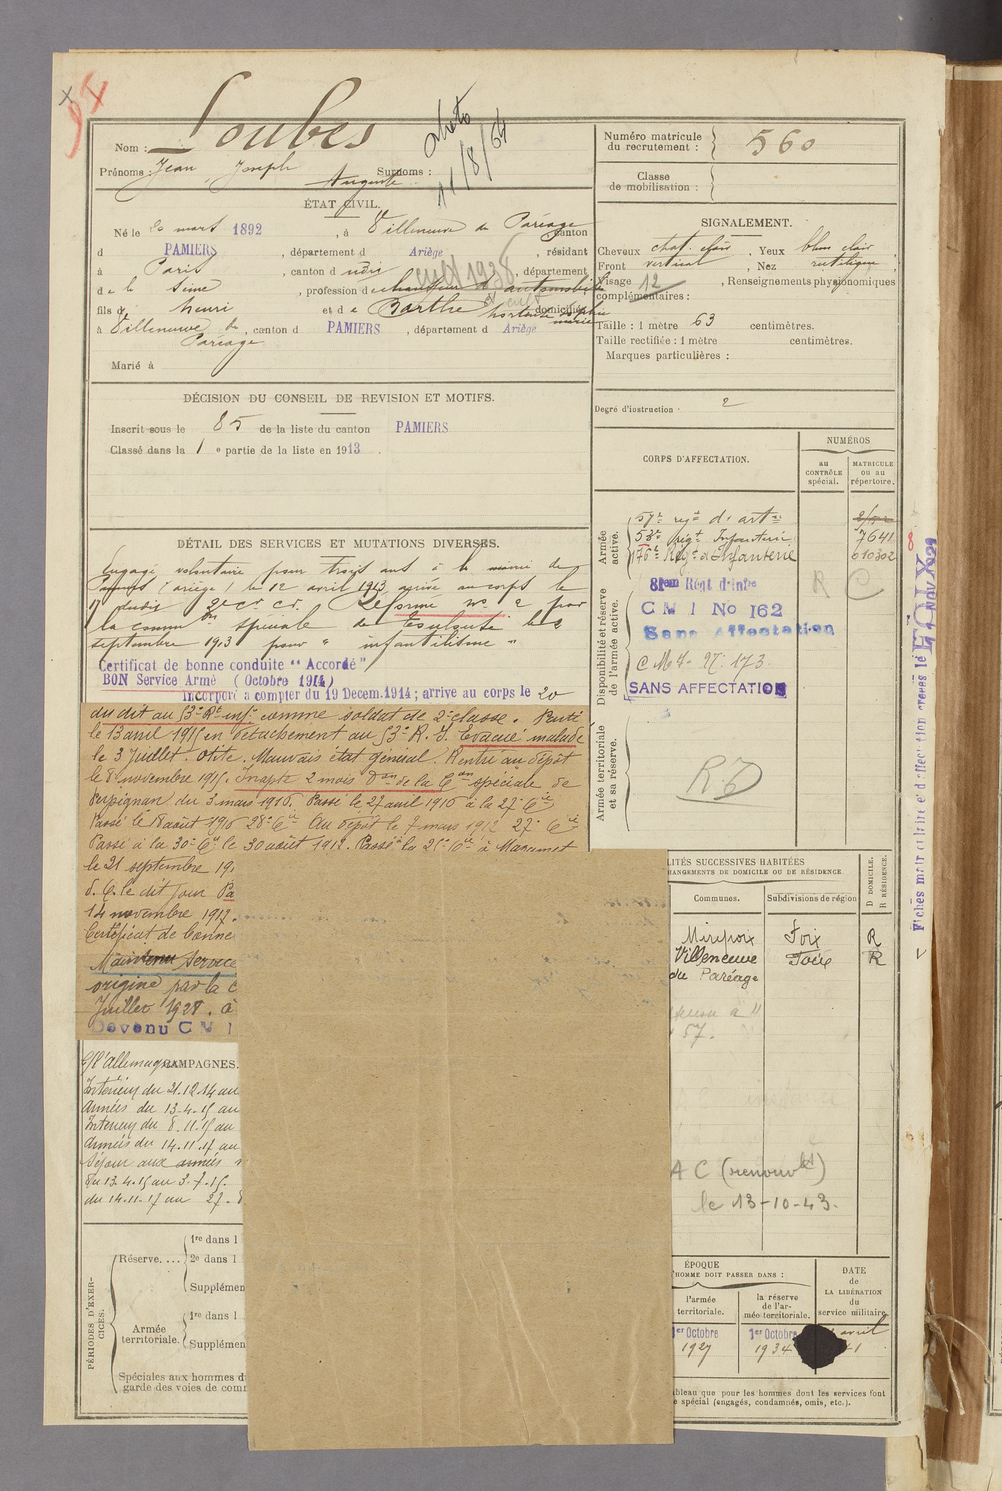 Loubes
Nom :
Prénoms : Jean, Joseph Surnoms :
Auguste
11/8/64
ÉTAT CIVIL.
Né le 20 mars 1892, à Villeneuve du Paréage canton
d PAMIERS, département d Ariège, résidant
à Paris, canton d udis, département
de la Seine, profession de chauffeur d'automobile
cult 1938
cult
fils d henri et de Barthe hortense domiciliés
à Villeneuve du, canton d PAMIERS, département d Ariège
Paréage
Marié à
DÉCISION DU CONSEIL DE REVISION ET MOTIFS.
Inscrit sous le 85 de la liste du canton PAMIERS
Classé dans la 1e partie de la liste en 1913.
DÉTAIL DES SERVICES ET MUTATIONS DIVERSES.
Engagé volontaire pour trois ans à la mairie de
Pamiers (ariège) le 12 avril 1913 arrivé au corps le
dudit 2e cr cr. Réformé no 2 par
la common spéciale de Toulouse le 2
septembre 1913 pour "infantilisme"
Certificat de bonne conduite "Accordé"
BON Service Armé (Octobre 1914)
Incorporé à compter du 19 Decem.1914; arrivé au corps le 20
du dit au 53e Rt infie comme soldat de 2e classe. Parti
le 13 avril 1915 en détachement au 53e R. I. Evacué malade
le 3 Juillet. Otite. Mauvais état général. Rentré au dépôt
le 8 novembre 1915. Inapte 2 mois Don de la Con spéciale de
Perpignan du 3 mars 1916. Passé le 27 avril 1916 à la 27e Cie
Passé le 18 août 1916 28e Cie. Au dépôt le 7 mars 1917 27e Cie
Passé à la 30e Cie le 30 août 1917. Passé à la 25e Cie à Mazamet
le 21 septembre 19
d. C. le dit jour Pa
14 novembre 1917.
Certificat de bonne
Maintenu Service
origine par la C
Juillet 1928. à
Devenu C M 1
C/ l'allemagne CAMPAGNES.
Intérieur du 21.12.14 au
Armées du 13-4-15 au
Interieur du 8.11.15 au
Armées du 14.11.17 au
Séjour aux armées
du 13.4.15 au 3-7-15.
du 14-11-17 au 27-
PÉRIODES D'EXERCICES.
Réserve....
1re dans l
2e dans l
Supplémen
Armée
territoriale.
1re dans l
Supplémen
Spéciales aux hommes d
garde des voies de com
Numéro matricule
du recrutement : 560
Classe
de mobilisation :
SIGNALEMENT.
Cheveux chat. clair, Yeux bleu clair
Front vertical, Nez rectiligne;
Visage 12, Renseignements physionomiques
complémentaires :
Taille : 1 mètre 63 centimètres.
Taille rectifiée : 1 mètre centimètres.
Marques particulières :
Degré d'instruction : 2
CORPS D'AFFECTATION.
NUMÉROS
au
CONTRÔLE
spécial.
MATRICULE
ou au
répertoire.
Armée
active.
57e regt d'artie
53e Regt Infanterie 7641
176e Regt d'Infanterie 010302
Disponibilité et réserve
de l'armée active.
81eme Régt d'infie
C M I No 162
Sans Affectation
R C
C M I - 27. 173
SANS AFFECTATION
Armée territoriale
et sa réserve.
LITÉS SUCCESSIVES HABITÉES
HANGEMENTS DE DOMICILE OU DE RÉSIDENCE
Communes.
Subdivisions de région
D DOMICILE.
R RÉSIDENCE.
Mirepoix Foix R
Villeneuve Foix R
du Paréage
57.
A C (renouvlt)
le 13-10-43.
ÉPOQUE
'HOMME DOIT PASSER DANS :
DATE
de
LA LIBÉRATION
du
service militaire.
l'armée
territoriale.
la réserve
de l'ar-
mée territoriale.
1er Octobre
1927
1er Octobre
1934
avril
41
ableau que pour les hommes dont les services font
e spécial (engagés, condamnés, omis, etc.).
FOIX